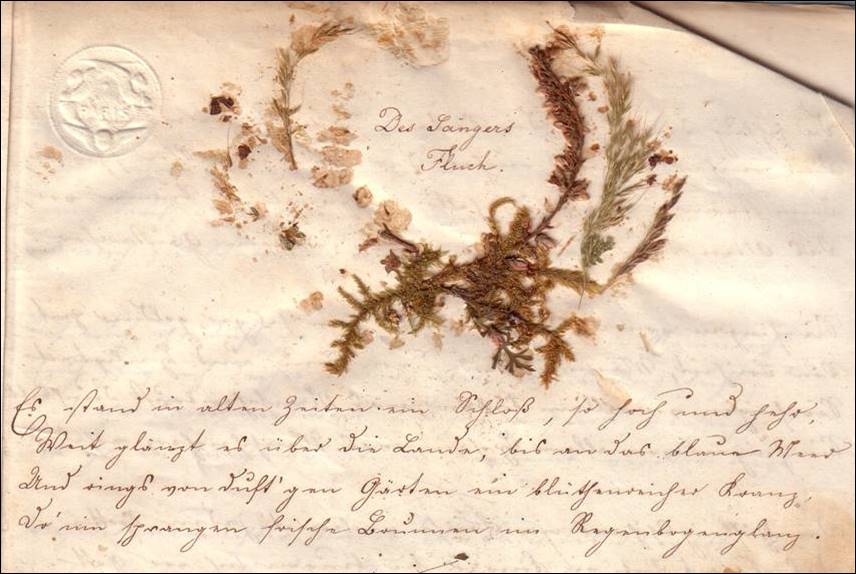 Des Sängers
Fluch.
Es stand in alten Zeiten ein Schloß, so hoch und hehr,
Weit glänzt es über die Lande, bis an das blaue Meer
Und rings von duft'gen Gärten ein blüthenreicher Kranz,
D'rin sprangen frische Brunnen im Regenbogenglanz.